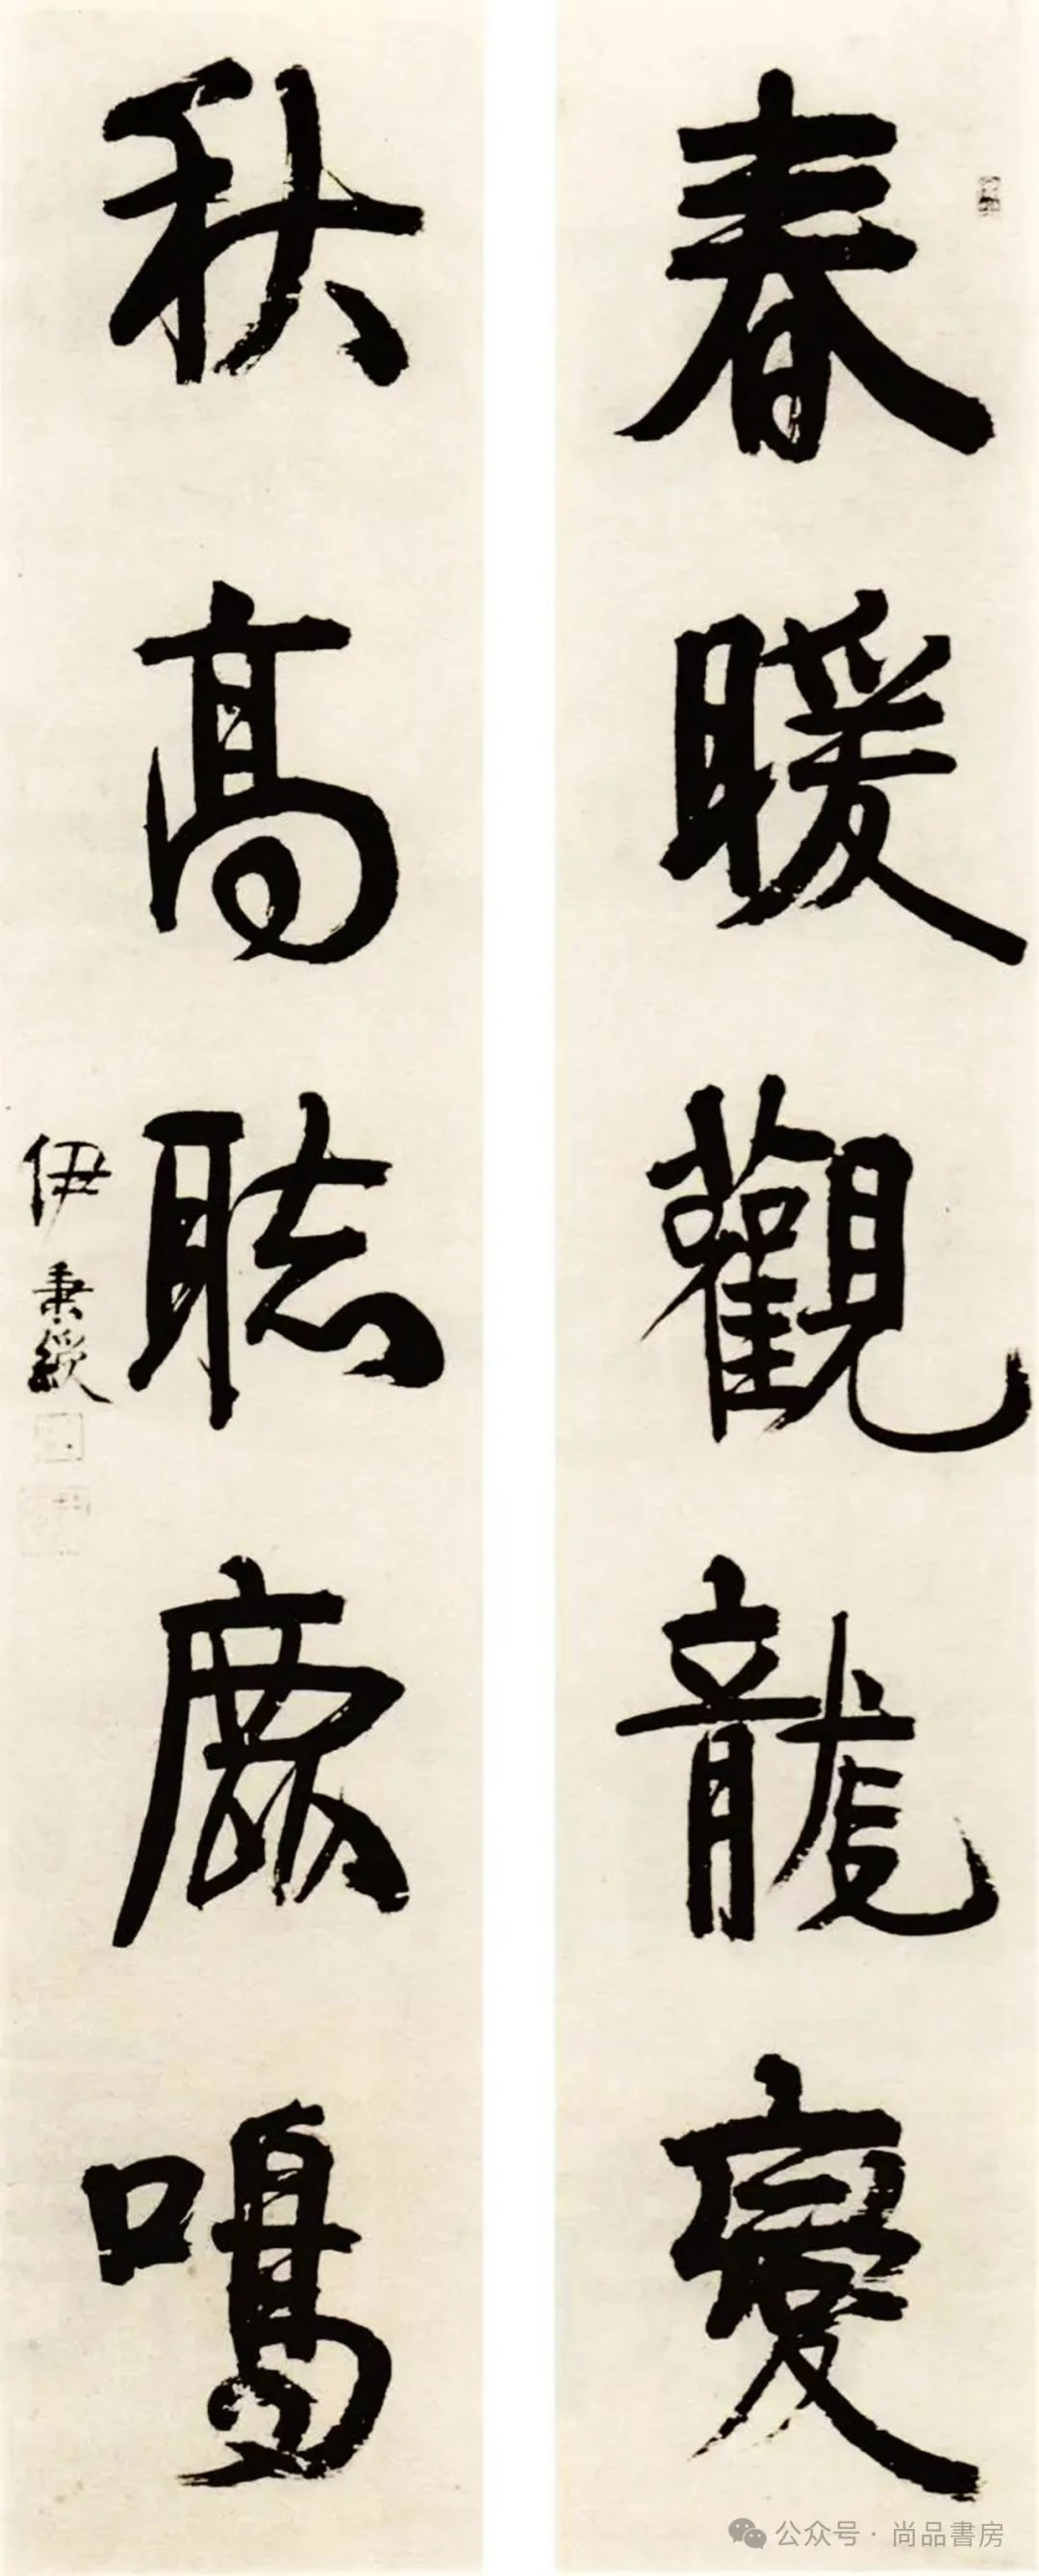 春暖觀龍變
秋高聽鹿鳴
伊秉綬
公众号 · 尚品書房